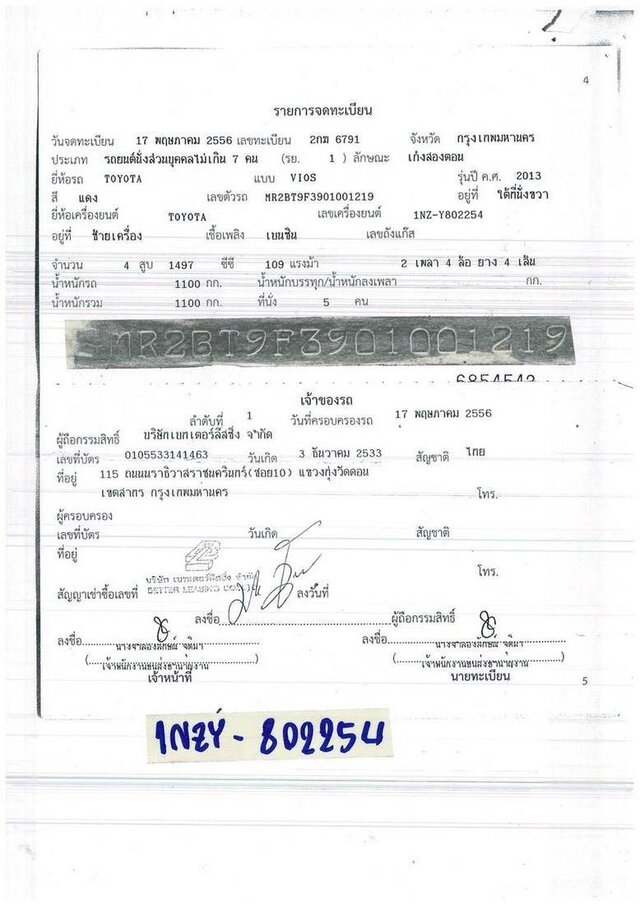 4
รายการจดทะเบียน
วันจดทะเบียน 17 พฤษภาคม 2556 เลขทะเบียน 2กฆ 6791 จังหวัด กรุงเทพมหานคร
ประเภท รถยนต์นั่งส่วนบุคคลไม่เกิน 7 คน (รย. 1 ) ลักษณะ เก๋งสองตอน
ยี่ห้อรถ TOYOTA แบบ VIOS รุ่นปี ค.ศ. 2013
สี แดง เลขตัวรถ MR2BT9F3901001219 อยู่ที่ ใต้ที่นั่งขวา
ยี่ห้อเครื่องยนต์ TOYOTA เลขเครื่องยนต์ 1NZ-Y802254
อยู่ที่ ซ้ายเครื่อง เชื้อเพลิง เบนซิน เลขถังแก๊ส
จำนวน 4 สูบ 1497 ซีซี 109 แรงม้า 2 เพลา 4 ล้อ ยาง 4 เส้น
น้ำหนักรถ 1100 กก. น้ำหนักบรรทุก/น้ำหนักลงเพลา กก.
น้ำหนักรวม 1100 กก. ที่นั่ง 5 คน
MR2BT9F3901001219
เจ้าของรถ
ลำดับที่ 1 วันที่ครอบครองรถ 17 พฤษภาคม 2556
ผู้ถือกรรมสิทธิ์ บริษัทเบทเตอร์ลีสซิ่ง จำกัด
เลขที่บัตร 0105533141463 วันเกิด 3 ธันวาคม 2533 สัญชาติ ไทย
ที่อยู่ 115 ถนนนราธิวาสราชนครินทร์(ซอย10) แขวงทุ่งวัดดอน
เขตสาทร กรุงเทพมหานคร โทร.
ผู้ครอบครอง
เลขที่บัตร วันเกิด สัญชาติ
ที่อยู่
โทร.
บริษัท เบทเตอร์ลีสซิ่ง จำกัด
BETTER LEASING CO.,LTD.
สัญญาเช่าซื้อเลขที่ ลงวันที่
ลงชื่อ ผู้ถือกรรมสิทธิ์
ลงชื่อ ลงชื่อ
เจ้าพนักงานขนส่งชำนาญงาน เจ้าพนักงานขนส่งชำนาญงาน
เจ้าหน้าที่ นายทะเบียน
5
1NZY-802254